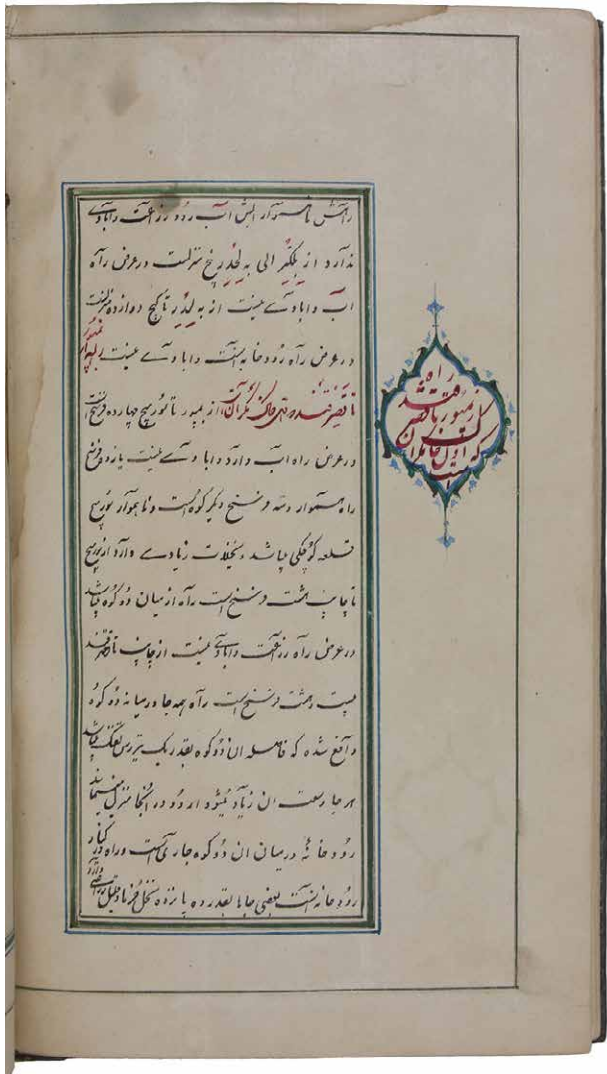 راهش ناهموار آبش آب رود زراعت و آبادی
ندارد از بلکیر الی به لیدر پنج منزلست در عرض راه
آب و آبادی نیست از به لیدر تا کیج دوازده
در عرض راه رودخانه است و آبادی نیست راه
تا قصرقند مکران از بمپور تا بوریسج چهارده فرسخ است
در عرض راه آب دارد و آبادی نیست یازده فرسخ
راه هموار و سه فرسخ دیگر کوه است و ناهموار
قلعه کوچکی میباشد و نخیلات زیادی دارد از
تا چانپ هشت فرسخ است راه از میان دو کوه میباشد
در عرض راه زراعت و آبادی نیست از چانپ تا قصرقند
بیست و هشت فرسخ است راه همه جا در میانه دو کوه
واقع شده که فاصله آن دو کوه بقدر یک تیررس تفنگ میباشد
هر جا وسعت آن زیاد میشود اردو در آنجا منزل مینماید
رودخانهٔ در میان آن دو کوه جاری است و راه در کنار
رودخانه است بعضی جاها بقدر ده پانزده نخل خرما و قلیل زراعتی دارد
راه
از بمپور تا قصرقند
که اول خاک مکران
است